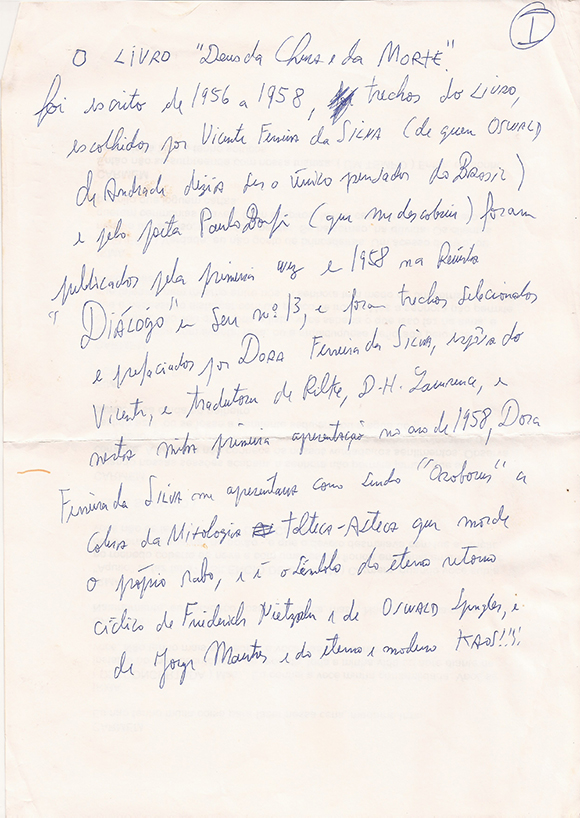 I
O LIVRO "Deus da Chuva e da MORTE"
foi escrito de 1956 a 1958, trechos do LIVRO,
escolhidos por Vicente Ferreira da SILVA (de quem OSWALD
de Andrade dizia ser o único pensador do Brasil)
e pelo poeta Paulo Bonfim (que me descobriu) foram
publicados pela primeira vez e 1958 na Revista
"DIÁLOGO" em seu nº 13, e foram trechos selecionados
e prefaciados por DORA Ferreira da SILVA, espôsa do
Vicente, e tradutora de Rilke, D.H. Lawrence, e
nesta minha primeira apresentação no ano de 1958, Dora
Ferreira da SILVA me apresentava como sendo "Oroborus" a
cobra da Mitologia tolteca-Asteca que morde
o próprio rabo, e é o símbolo do eterno retorno
cíclico de Friederich Nietzsche e de OSWALD Spengler, e
de Jorge Mautner e do eterno e moderno KAOS!!!